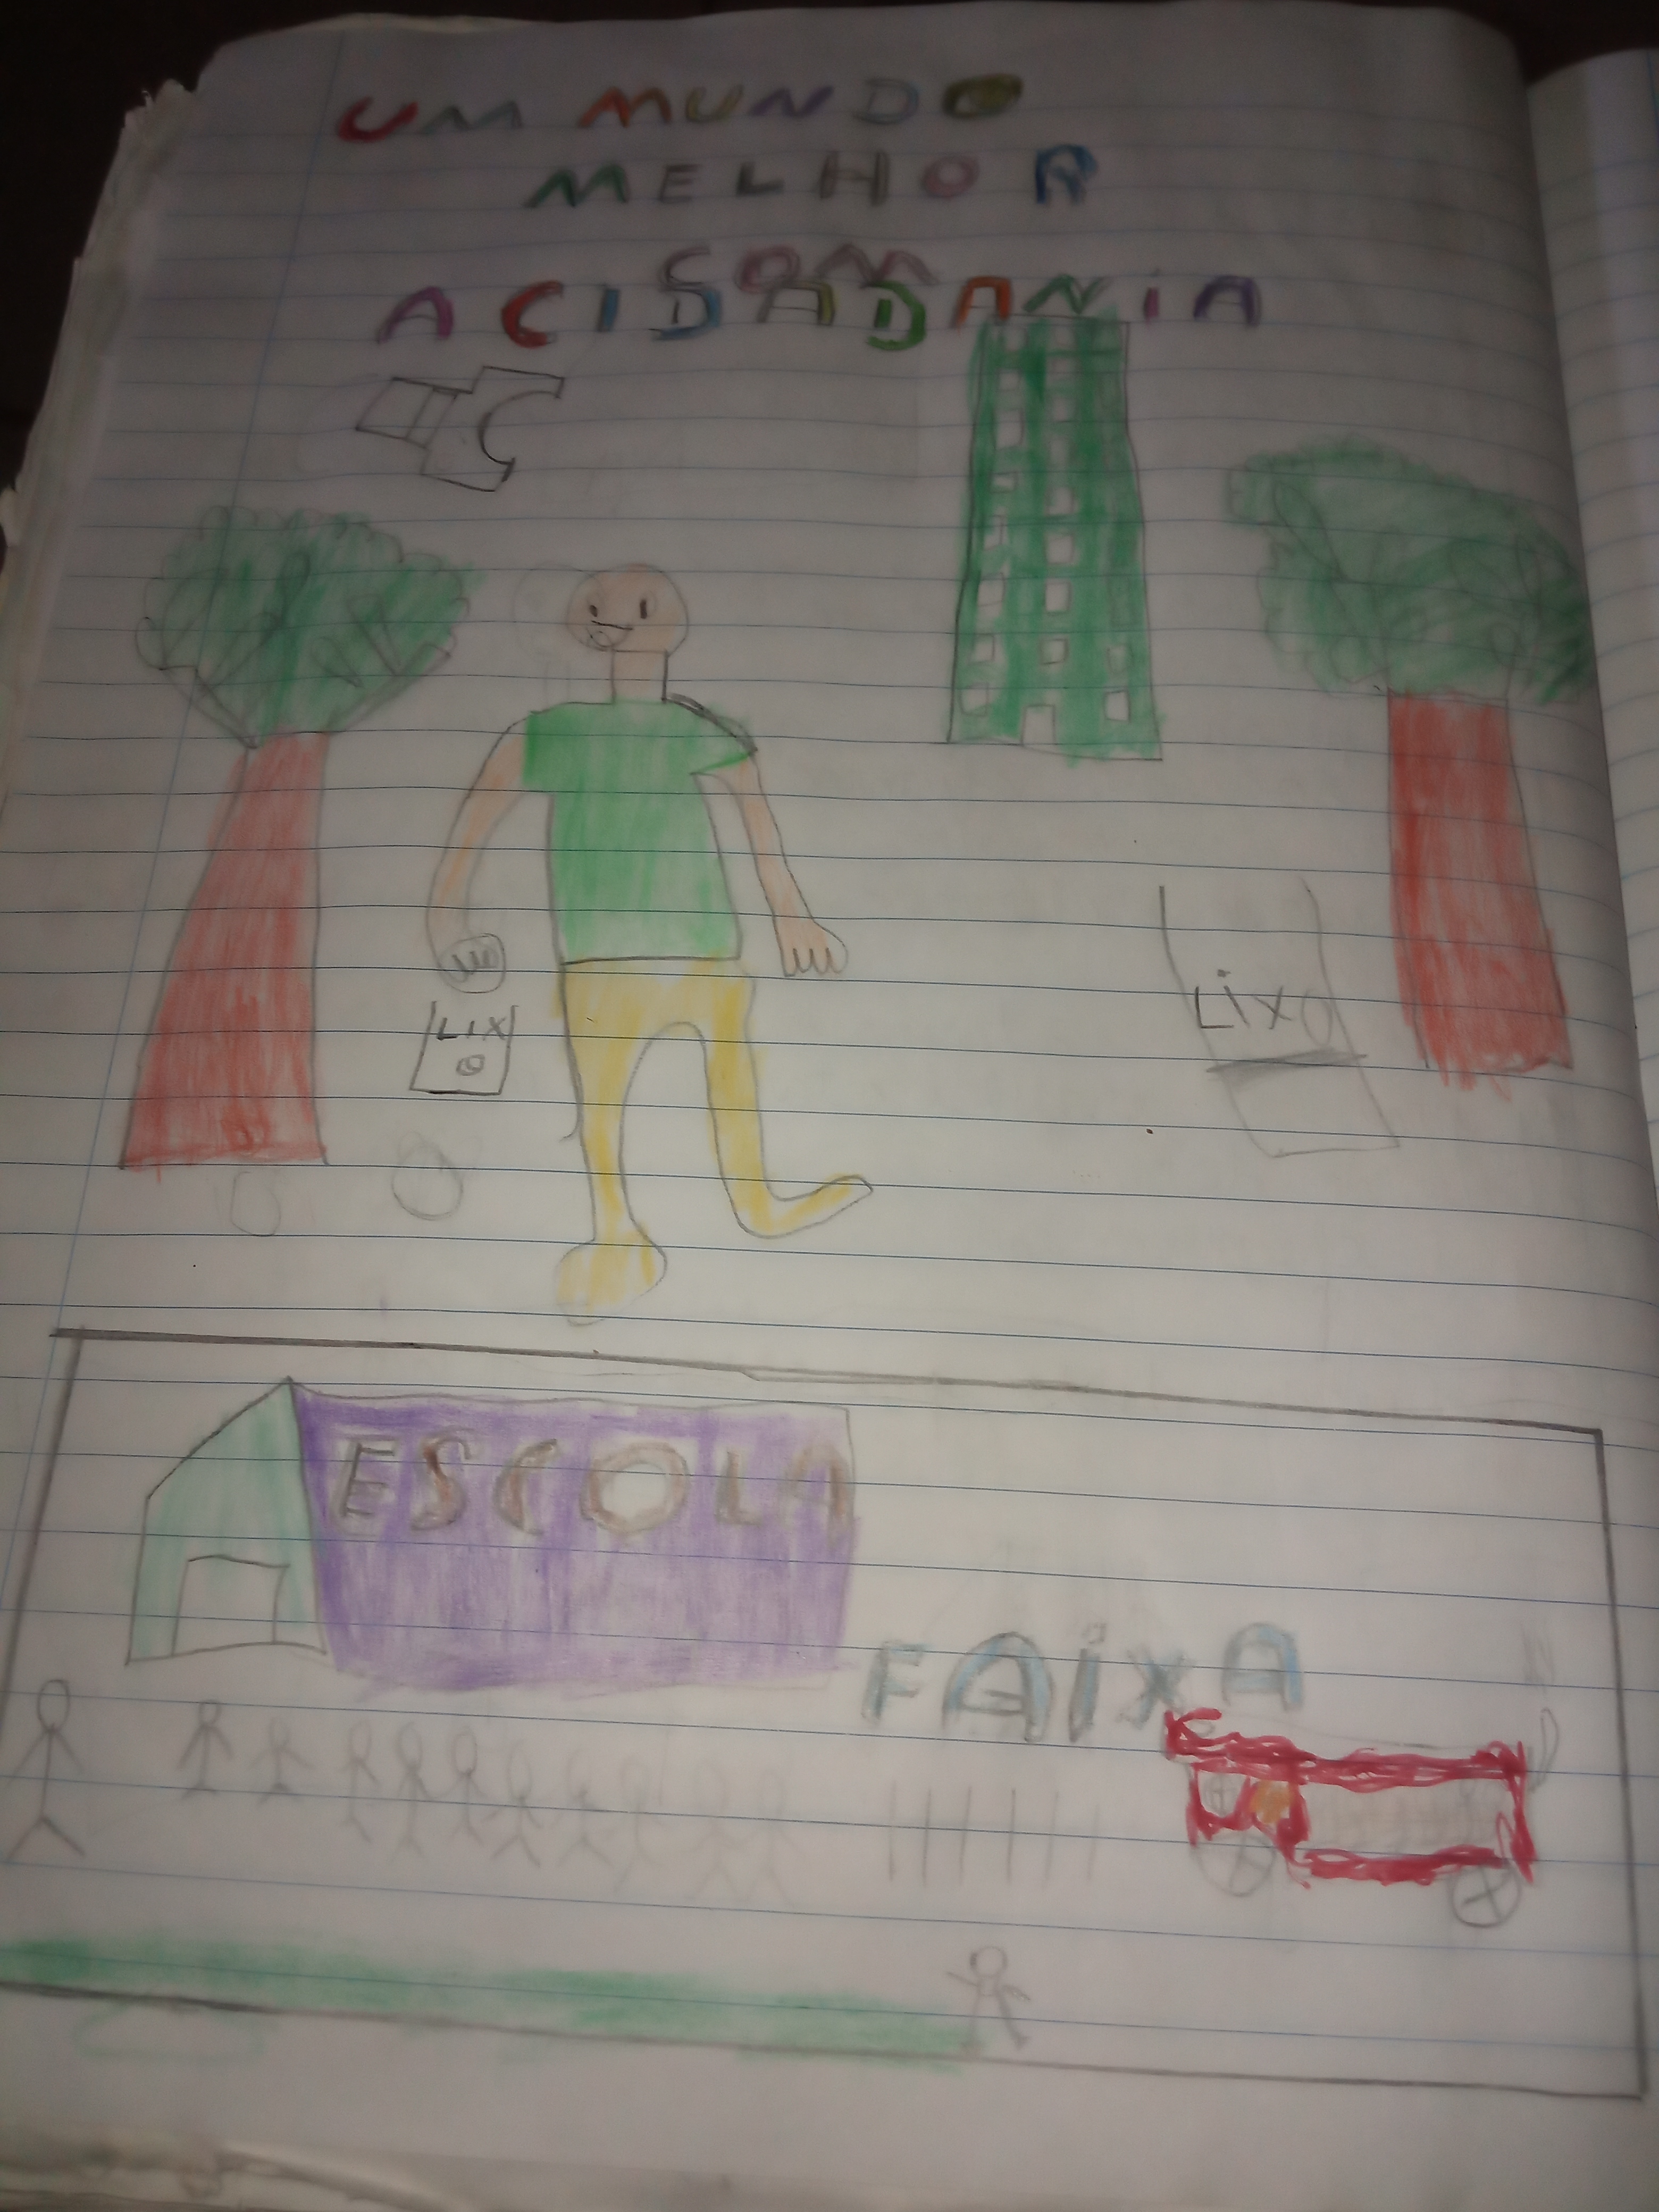 UM MUNDO
MELHOR
COM
A CIDADANIA
LIXO
LIX
O
ESCOLA
FAIXA